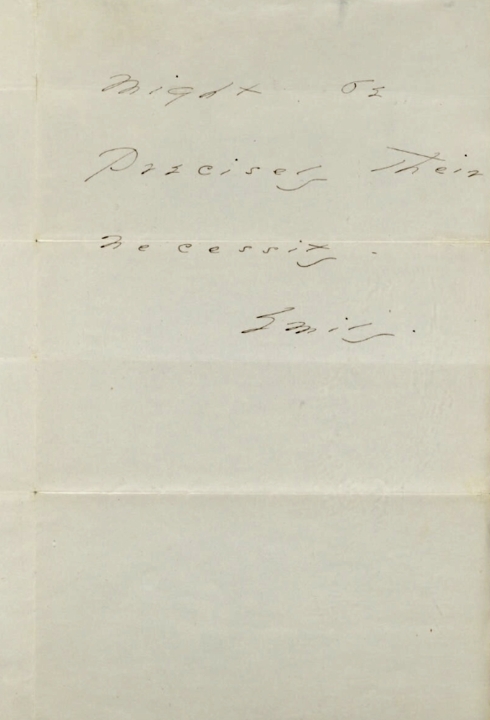 Might be
Precisely Their
necessity.
Emily.